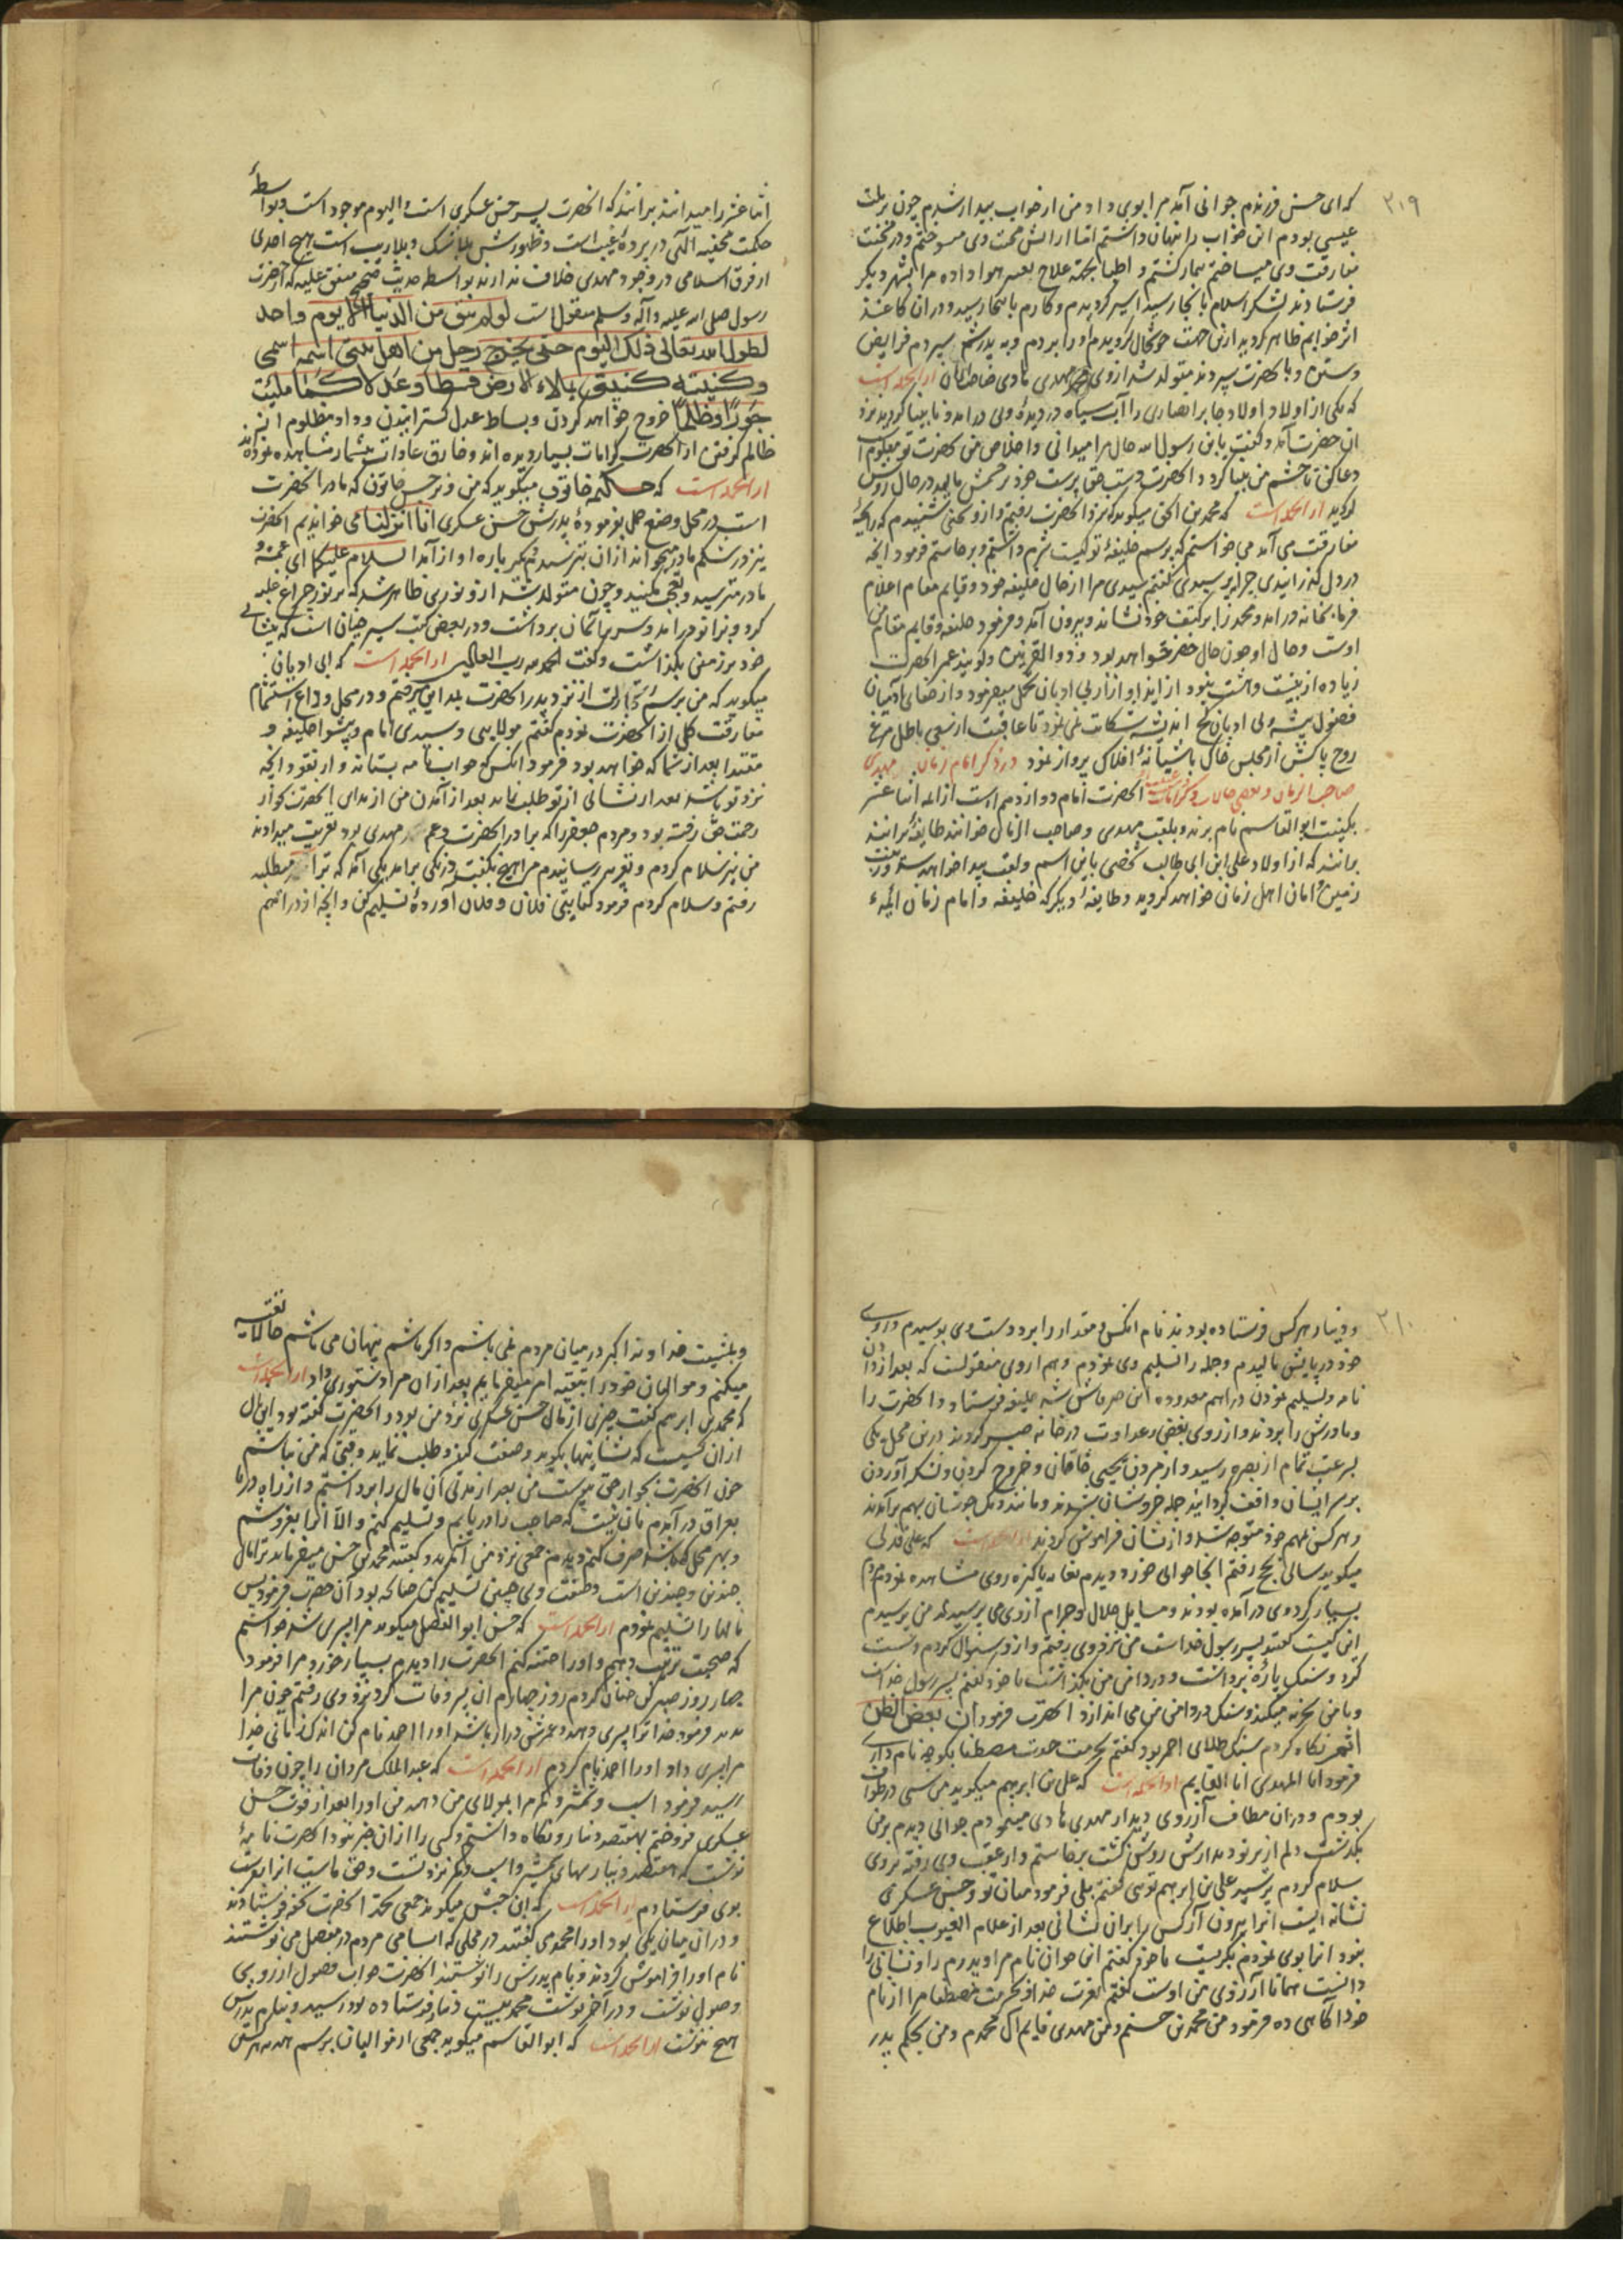 ۲۱۹
که ای حسن فرزندم جوانی آمد مرا بوی داد من از خواب بیدار شدم چون بر ملت
عیسی بودم این خواب را پنهان داشتم اما از آتش محبت وی می سوختم و در محنت
مفارقت وی می ساختم بیمار گشتم و اطبا بجهة علاج بتغییر هوا داده مرا بشهر دیگر
فرستادند لشکر اسلام بانجا رسید اسیر گردیدم و کارم باینجا رسید و در آن کاغذ
اثر خوابم ظاهر گردید ازین جهت خوشحال گردیدم او را بردم و به پدرش سپردم فرایض
و سنن و با آنحضرت سپردند متولد شد از وی محمد مهدی هادی صاحب الزمان از آنجمله است
که یکی از اولاد اولاد جابر انصاری را آب سیاه در دیده وی در آمد و نابینا گردید نزد
آن حضرت آمد و گفت یا بن رسول الله حال مرا میدانی و اخلاص من بحضرت تو معلوم است
دعا کن تا چشم من بینا گردد آنحضرت دست حق پرست خود بر چشمش مالید در حال روشن
گردید از آنجمله است که محمد بن میگوید که نزد آنحضرت رفتم و از وی سخنی شنیدم که رایحهٔ
مفارقت می آمد می خواستم که بپرسم خلیفهٔ تو کیست شرم داشتم و برخاستم فرمود آنچه
در دل گذرانیدی چرا نپرسیدی گفتم سیدی مرا از حال خلیفه خود و قایم مقام اعلام
فرما بخانه در آمد و محمد را بر کتف خود نشانده بیرون آمد و فرمود خلیفه و قایم مقام من
اوست و حال او چون حال خضر خواهد بود و ذو القرنین و گویند عمر آنحضرت
زیاده از بیست و هشت نبود از ایذا و آزار بی ادبان تحمل میفرمود و از جفای آدمیان
فضول پیشه بی ادبان کج اندیشه شکایت نمی نمود تا عاقبت از سعی باطل مرغ
روح پاکش از مجلس خاک باشیانهٔ افلاک پرواز نمود در ذکر امام زمان مهدی
صاحب الزمان و بعضی حالات و کرامات آنحضرت امام دوازدهم است از ائمه اثنا عشر
بکنیت ابو القاسم نام برند و بلقب مهدی و صاحب الزمان خوانند طایفهٔ برانند
برانند که از اولاد علی ابن ابی طالب شخصی باین اسم و لقب پیدا خواهد شد و زینت
زمین و امان اهل زمان خواهد گردید و طایفهٔ دیگر که خلیفه و امام زمان ایمهٔ
اثنا عشر را میدانند برانند که آنحضرت پسر حسن عسکری است و الیوم موجود است و بواسطهٔ
حکمت مخفیه الهی در پردهٔ غیب است و ظهورش بلا شک و بلا ریب است هیچ احدی
از فرق اسلامی در وجود مهدی خلاف ندارند بواسطه حدیث صحیح متفق علیه که از حضرت
رسول صلی الله علیه و آله و سلم منقول است لو لم یبق من الدنیا الا یوم واحد
لطول الله تعالی ذلک الیوم حتی یخرج رجل من اهل بیتی اسمه اسمی
و کنیته کنیتی یملاء الارض قسطا و عدلا کما ملئت
جورًا و ظلمًا خروج خواهد کردن و بساط عدل گسترانیدن و داد مظلوم از
ظالم گرفتن از آنحضرت کرامات بسیار دیده اند و خارق عادات بیشمار مشاهده نموده اند
از آنجمله است که حکیمه خاتون میگوید که من و نرجس خاتون که مادر آنحضرت
است در محل وضع حمل بفرمودهٔ پدرش حسن عسکری انا انزلنا می خواندیم آنحضرت
نیز در شکم مادر میخواند از آن بترسیدم دیگر باره آواز آمد السلام علیکما ای عمه و
مادر مترسید و تعجب مکنید و چون متولد شد از و نوری ظاهر شد که بر نور چراغ غلبه
کرد و بزانو در آمد و سر بر آسمان برداشت و در بعضی کتب سیر چنان است که پیشانی
خود بر زمین بگذاشت و گفت الحمد لله رب العالمین از آنجمله است که ابی ادیان
میگوید که من برسم تجارت از نزد پدر آنحضرت بمداین میرفتم و در محل وداع استشمام
مفارقت کلی از آنحضرت نمودم گفتم مولایی و سیدی امام و پیشوا خلیفه و
مقتدا بعد از شما که خواهد بود فرمود آنکس که جواب نامه بستاند و از نقود آنچه
نزد تو باشد بعد از نشانی از تو طلب نماید بعد از آمدن من از مداین آنحضرت بجوار
رحمت حق رفته بود و مردم جعفر را که برادر آنحضرت و عم مهدی بود تعزیت میدادند
من نیز سلام کردم و تعزیه رسانیدم مرا هیچ نگفت و زنگی برآمد یکی آمد که ترا میطلبد
رفتم و سلام کردم فرمود کتابتی فلان و فلان آوردهٔ تسلیم کن و آنچه از دراهم
۲۲۰
و دینار هر کس فرستاده بودند نام آنکس و مقدار را برد و دست وی بوسیدم و روی
خود در پایش مالیدم و جمله را تسلیم وی نمودم و هم از وی منقولست که بعد از دادن
نامه و تسلیم نمودن دراهم معدوده این خبر فاش شد خلیفه فرستاد و آنحضرت را
و مادرش را بردند و از روی بغض و عداوت در خانه حبس کردند درین محل یکی
بسرعت تمام از بصره رسید و از مردن یحیی خاقانی و خروج کردن و لشکر آوردن
بر سر ایشان واقف گردانید جمله خروشان شدند و مانند دیک جوشان بهم برآمدند
و هر کس بمهم خود متوجه شد و از ایشان فراموش کردند از آنجمله است که علی فدکی
میگوید سالی بحج رفتم آنجا جوانی خوب رو دیدم بغایت پاکیزه روی مشاهده نمودم مردم
بسیار گرد وی در آمده بودند و مسایل حلال و حرام از وی می پرسیدند من پرسیدم
این کیست گفتند پسر رسول خداست من نزد وی رفتم و از و سؤال کردم دست
کرد و سنک پارهٔ برداشت و در دامن من بگذاشت با خود گفتم پسر رسول خداست
و با من سخریه میکند و سنک در دامن من می اندازد آنحضرت فرمود ان بعض الظن
اثم نگاه کردم سنک طلای احمر بود گفتم بحرمت جدت مصطفا بگو چه نام داری
فرمود انا المهدی انا القایم از آنجمله است که علی بن ابرهیم میگوید من سی در طواف
بودم و در آن مطاف آرزوی دیدار مهدی هادی مینمودم جوانی دیدم بر من
بگذشت دلم از پرتو دیدارش روشن گشت برخاستم و از عقب وی رفته بر وی
سلام کردم پرسید علی بن ابرهیم توئی گفتم بلی فرمود میان تو و حسن عسکری
نشانه ایست آنرا بیرون آر کس را بران نشانی بعد از علام الغیوب اطلاع
نبود آنرا بوی نمودم بگریست با خود گفتم این جوان نام مرا و پدرم را و نشانی را
دانست همانا آرزوی من اوست گفتم بعزت خدا و بحرمت مصطفا مرا از نام
خود آگاهی ده فرمود من محمد بن حسنم و من مهدی قایم آل محمدم و من بحکم پدر
و بمشیت خداوند اکبر در میان مردم نمی باشم و اگر باشم پنهان می باشم حالا تقیه
میکنم و موالیان خود را بتقیه امر میفرمایم بعد از آن مرا دستوری داد از آنجمله است
که محمد بن ابرهیم گفت چیزی از مال حسن عسکری نزد من بود و آنحضرت گفته بود این مال
از آن کسیست که نشانیها بگوید و صفت کند و طلب نماید وقتی که من نباشم
چون آنحضرت بجوار حق پیوست من بعد از مدتی آن مال را برداشتم و از راه دریا
بعراق در آمدم بآن نیت که صاحب را دریابم و تسلیم کنم و الا آنرا بفروشم
و بهر محل که باشد صرف کنم دیدم جمعی نزد من آمدند و گفتند محمد بن حسن میفرماید ترا مال
چندین و چندین است و صفت وی چنین تسلیم کن چنانکه بود آن حضرت فرمود پس
مالها را تسلیم نمودم از آنجمله است که حسن ابو الفضل میگوید مرا پسری شد خواستم
که صحبت ترتیب دهم و او را ختنه کنم آنحضرت را دیدم بسیار خورد مرا فرمود
چهار روز صبر کن چنان کردم روز چهارم آن پسر وفات کرد نزد وی رفتم چون مرا
بدید فرمود خدا ترا پسری دهد و عمرش دراز باشد او را احمد نام کن اندک زمانی خدا
مرا پسری داد او را احمد نام کردم از آنجمله است که عبد الملک مردان را چون وفات
رسید فرمود اسب و شمشیر و کمر مرا بمولای من دهند من او را بعد از فوت حسن
عسکری فروختم بهفتصد دینار و نگاه داشتم و کسی را از آن خبر نبود آنحضرت نامهٔ
نوشت که هفتصد دینار بهای شمشیر و اسب و کمر نزد تست و حق ماست آنرا بفرست
بوی فرستادم از آنجمله است که ابن حبش میگوید جمعی بجهة آنحضرت تحفه فرستادند
و در آن میان یکی بود او را محمدی گفتند در محلی که اسامی مردم در مفصل می نوشتند
نام او را فراموش کردند و نام پدرش را نوشتند آنحضرت جواب فصول از روی
وصول نوشت و در آخر نوشت محمد بیست دینار فرستاده بود رسید و بنام پدرش
هیچ ننوشت از آنجمله است که ابو القاسم میگوید جمعی از موالیان برسم هدیه هر کس